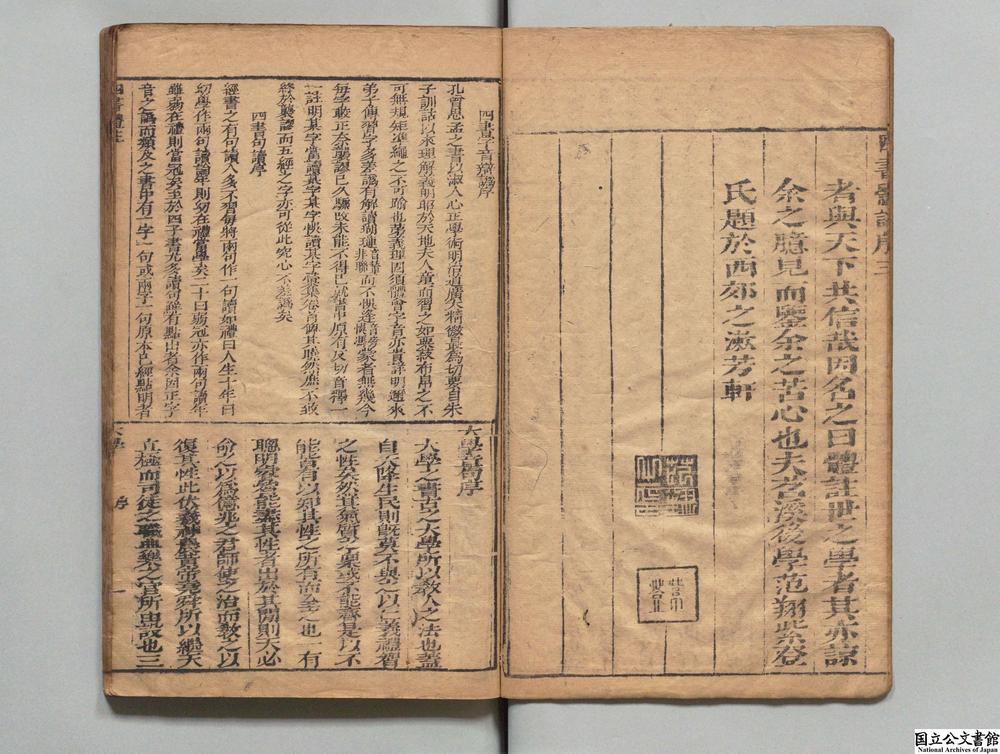 四書體註序三
者與天下共信哉因名之曰體註世之學者其亦諒
余之臆見而鑒余之苦心也夫苕溪後學范翔紫登
氏題於西郊之漱芳軒
四書字音辯譌序
孔曾思孟之書以淑人心正學術明倫道廣大精微最為切要自朱
子訓詁以來理解義明耶於天地夫人童而習之如粟菽布帛之不
可無規矩準繩之不可踰也第義理固須體會字音亦貴詳明邇來
弟子傳習字多差譌有解讀瑚璉音輦非聯而不悞逢蒙者無幾今
每字較正奈襲謬已久驟改未能不得已就書中原有反切音釋一
一註明某字當讀某字某字悞讀某字彙集卷首俾其瞭然庶不致
終於襲謬而五經之字亦可從此究心不差譌矣
四書句讀序
經書之有句讀人多不習每將兩句作一句讀如禮曰人生十年曰
幼學作兩句讀論年則幼在禮當學矣二十曰弱冠亦作兩句讀年
雖弱在禮則當冠矣至於四子書尤多讀句雖有點出者余因正字
音之譌而類及之書中有一字一句或兩字一句原本已經點明者
四書體註
大學章句序
大學之書古之大學所以教人之法也蓋
自天降生民則既莫不與之以仁義禮智
之性矣然其氣質之稟或不能齊是以不
能皆有以知其性之所有而全之也一有
聰明睿智能盡其性者出於其間則天必
命之以為億兆之君師使之治而教之以
復其性此伏羲神農黃帝堯舜所以繼天
立極而司徒之職典樂之官所由設也三
大學 序 一
国立公文書館
National Archives of Japan